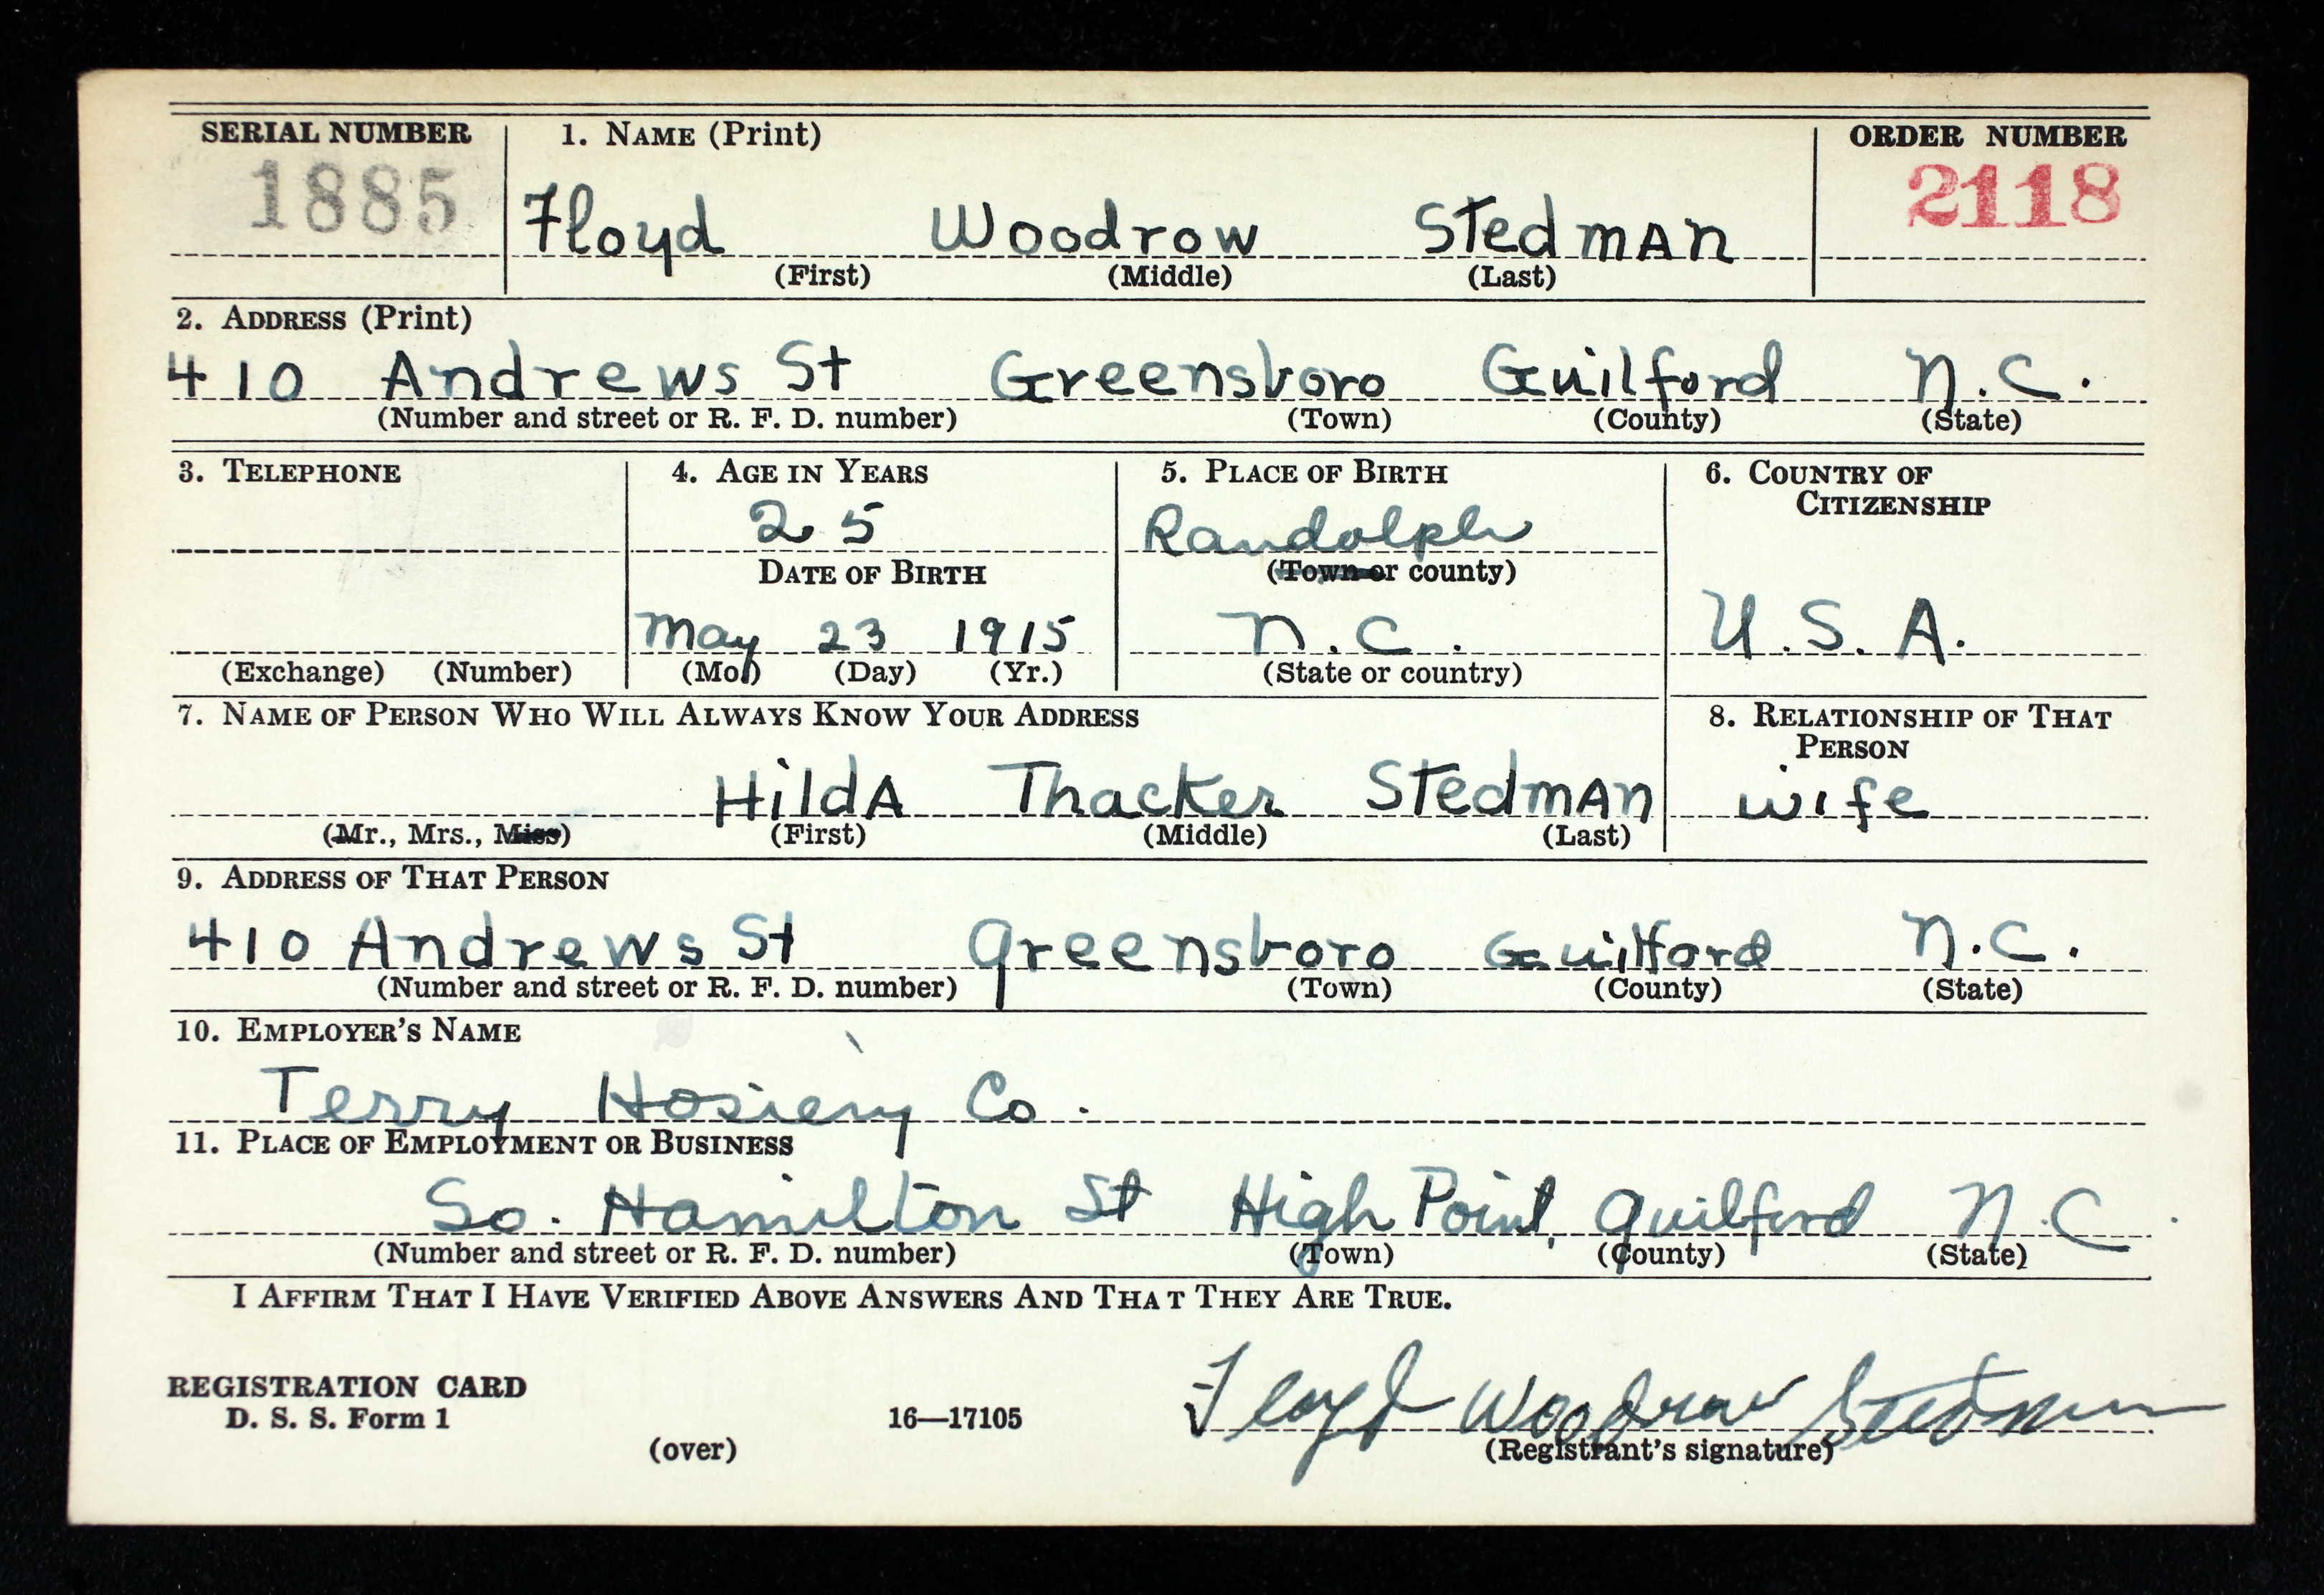 SERIAL NUMBER 1. NAME (Print) ORDER NUMBER
1885 Floyd Woodrow Stedman 2118
(First) (Middle) (Last)
2. ADDRESS (Print)
410 Andrews St Greensboro Guilford N.C.
(Number and street or R. F. D. number) (Town) (County) (State)
3. TELEPHONE 4. AGE IN YEARS 5. PLACE OF BIRTH 6. COUNTRY OF
CITIZENSHIP
25 Randolph
DATE OF BIRTH (Town or county)
May 23 1915 N.C. U.S.A.
(Exchange) (Number) (Mo.) (Day) (Yr.) (State or country)
7. NAME OF PERSON WHO WILL ALWAYS KNOW YOUR ADDRESS 8. RELATIONSHIP OF THAT
PERSON
HildA Thacker StedmAn wife
(Mr., Mrs., Miss) (First) (Middle) (Last)
9. ADDRESS OF THAT PERSON
410 Andrews St Greensboro Guilford N.C.
(Number and street or R. F. D. number) (Town) (County) (State)
10. EMPLOYER'S NAME
Terry Hosiery Co.
11. PLACE OF EMPLOYMENT OR BUSINESS
So. Hamilton St High Point, Guilford N.C.
(Number and street or R. F. D. number) (Town) (County) (State)
I AFFIRM THAT I HAVE VERIFIED ABOVE ANSWERS AND THAT THEY ARE TRUE.
REGISTRATION CARD
D. S. S. Form 1 16—17105 Floyd Woodrow Stedman
(over) (Registrant's signature)